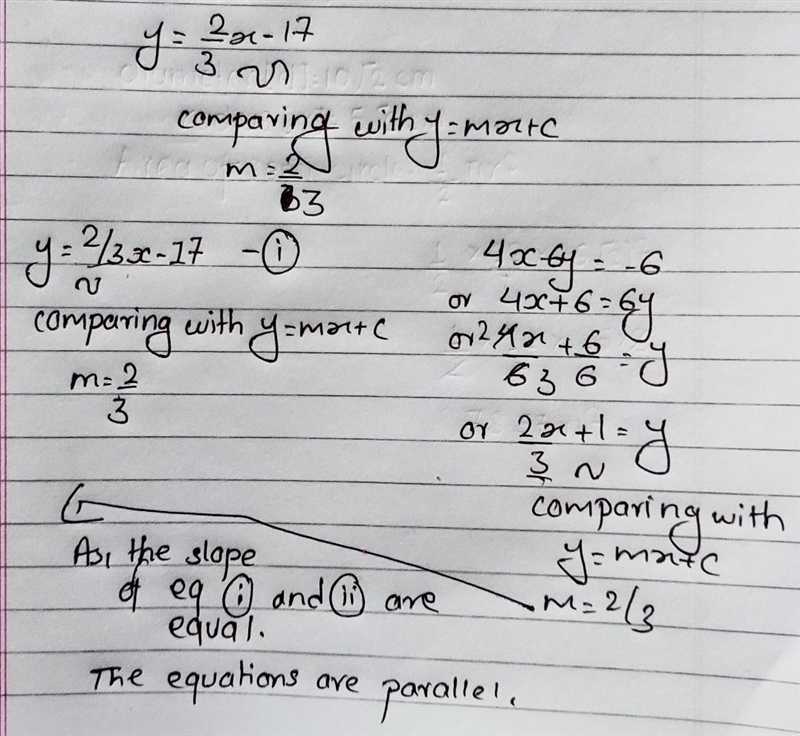 y = 2/3 x - 17
comparing with y = mx + c
m = 2/3
y = 2/3x - 17 - (i)
comparing with y = mx + c
m = 2/3
4x - 6y = -6
or 4x + 6 = 6y
or 4x/6 + 6/6 = y
or 2x/3 + 1 = y
comparing with
y = mx + c
m = 2/3
As, the slope
of eq (i) and (ii) are
equal.
The equations are parallel.